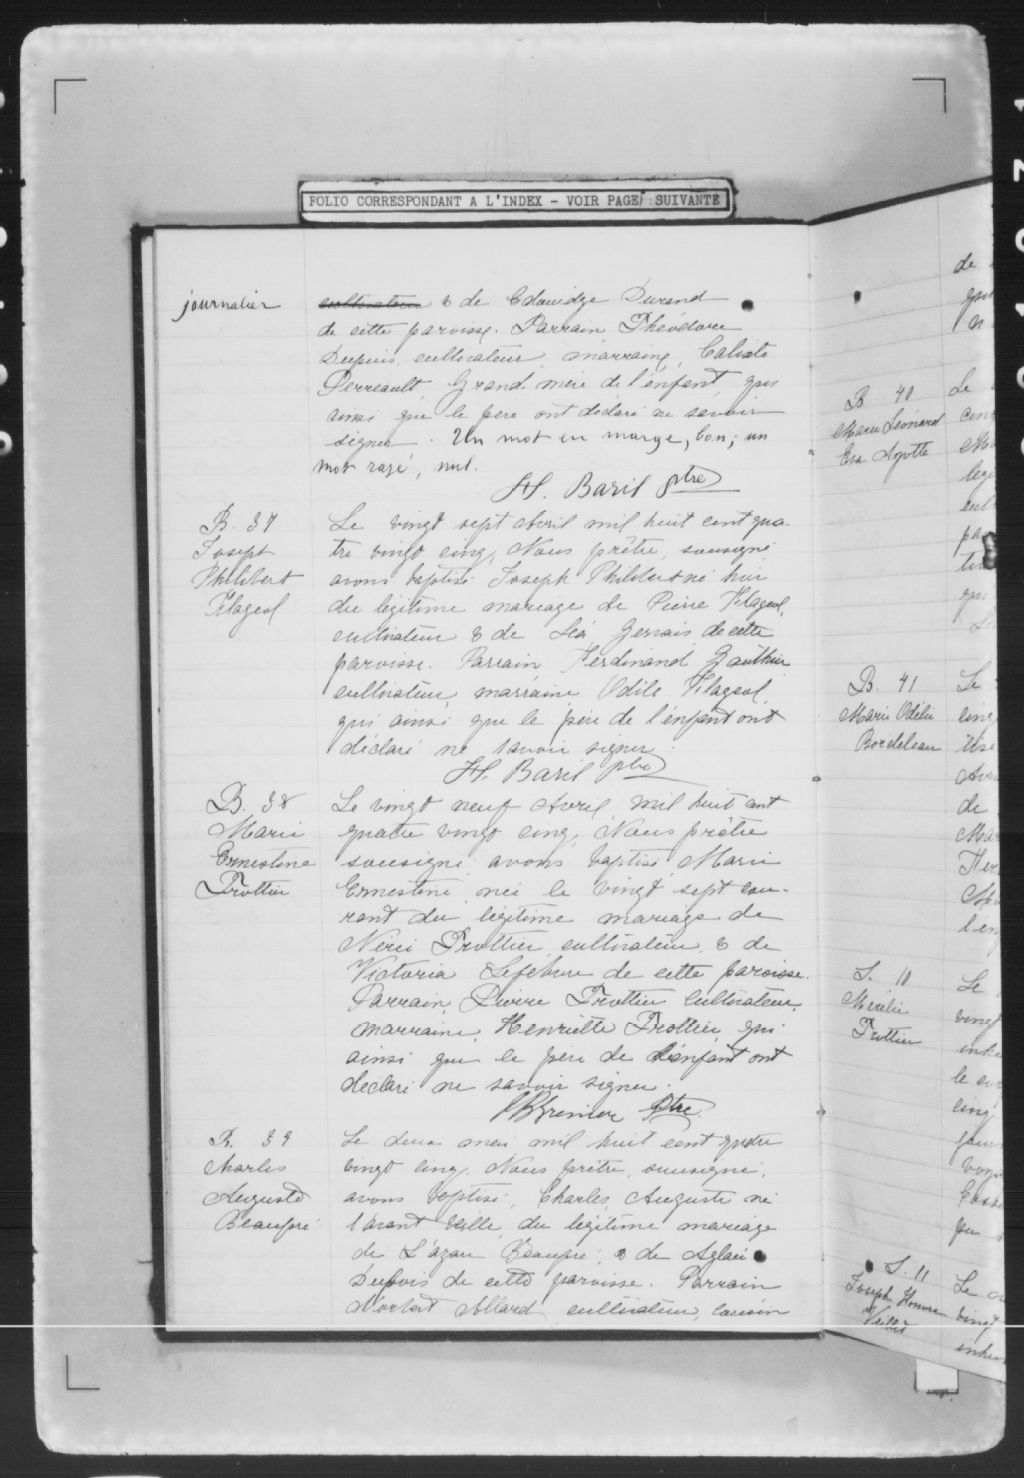 FOLIO CORRESPONDANT A L'INDEX - VOIR PAGE SUIVANTE
journalier
cultivateur & de Edouidge Durand
de cette paroisse. Parrain Théodore
Dupuis, cultivateur, marraine, Calixte
Perreault, Grand mère de l'enfant qui
ainsi que le père ont déclaré ne savoir
signer. Un mot en marge, bon; un
mot rayé, nul.
H. Baril ptre
B. 37
Joseph
Philibert
Flageol
Le vingt sept Avril mil huit cent qua-
tre vingt cinq, Nous prêtre, sousigné
avons baptisé Joseph Philibert né hier
du légitime mariage de Pierre Flageol,
cultivateur & de Léa Gervais de cette
paroisse. Parrain Ferdinand Gauthier
cultivateur, marraine Odile Flageol
qui ainsi que le père de l'enfant ont
déclaré ne savoir signer.
H. Baril ptre
B. 38
Marie
Ernestine
Trottier
Le vingt neuf Avril, mil huit cent
quatre vingt cinq, Nous prêtre
sousigné avons baptisé Marie
Ernestine née le vingt sept cou-
rant du légitime mariage de
Nérée Trottier, cultivateur & de
Victoria Lefebvre de cette paroisse.
Parrain, Pierre Trottier cultivateur,
marraine, Henriette Trottier, qui
ainsi que le père de l'enfant ont
déclaré ne savoir signer.
Grenier Ptre.
B. 39
Charles
Auguste
Beaupré
Le deux mai mil huit cent quatre
vingt cinq, Nous prêtre, sousigné,
avons baptisé, Charles, Auguste né
l'avant veille, du légitime mariage
de L'azare Beaupré, & de Aglaé
Dubois de cette paroisse. Parrain
Norbert Allard, cultivateur, cousin
B 40
Marie Léonard
Eva Ayotte
B. 41
Marie Odélie
Bordeleau
S. 10
Trottier
S. 11
Joseph
de
Le
Le
de
Le
Le